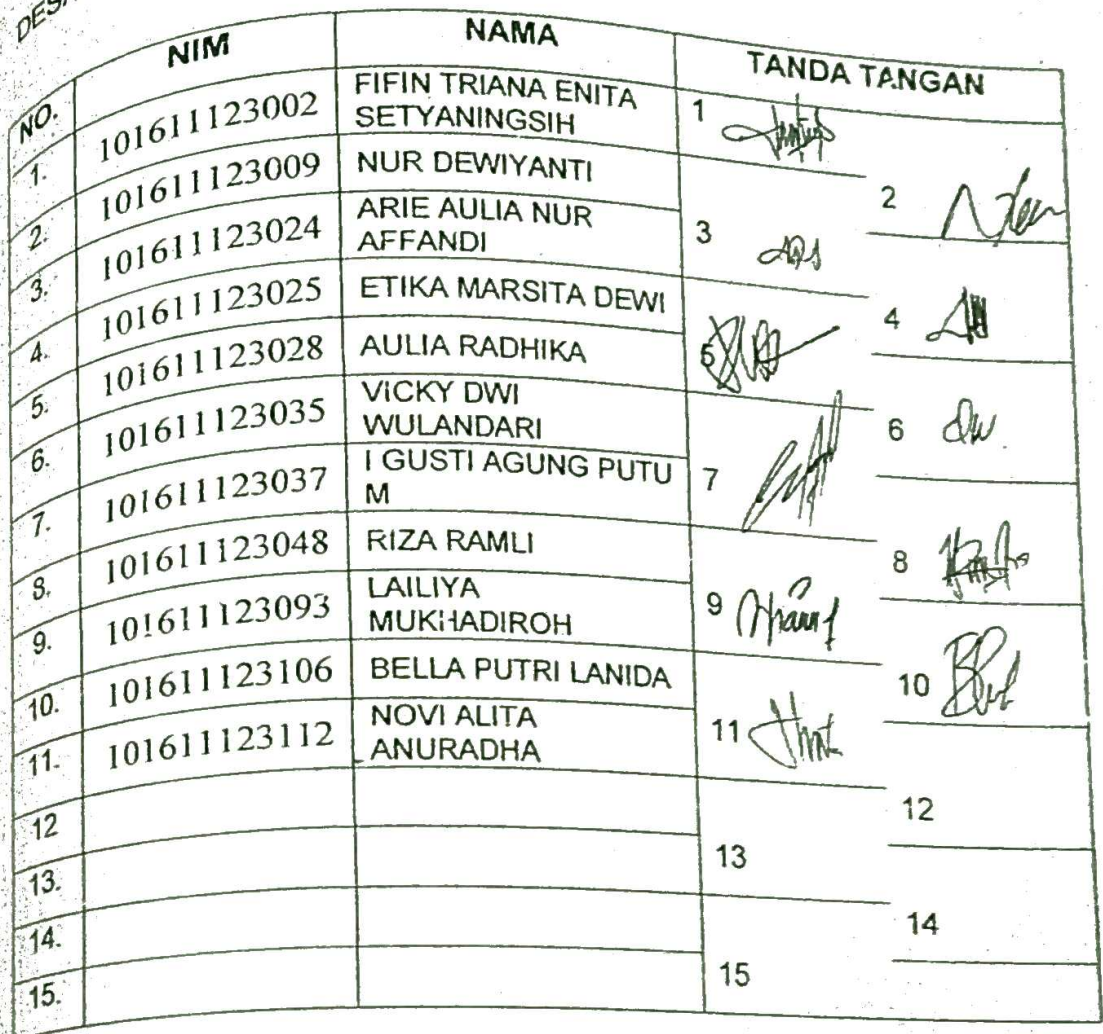 NO. NIM NAMA TANDA TANGAN
1. 101611123002 FIFIN TRIANA ENITA 1
SETYANINGSIH
2. 101611123009 NUR DEWIYANTI 2
3. 101611123024 ARIE AULIA NUR 3
AFFANDI
4. 101611123025 ETIKA MARSITA DEWI 4
5. 101611123028 AULIA RADHIKA 5
6. 101611123035 VICKY DWI 6
WULANDARI
7. 101611123037 I GUSTI AGUNG PUTU 7
M
8. 101611123048 RIZA RAMLI 8
9. 101611123093 LAILIYA 9
MUKHADIROH
10. 101611123106 BELLA PUTRI LANIDA 10
11. 101611123112 NOVI ALITA 11
ANURADHA
12 12
13. 13
14. 14
15. 15